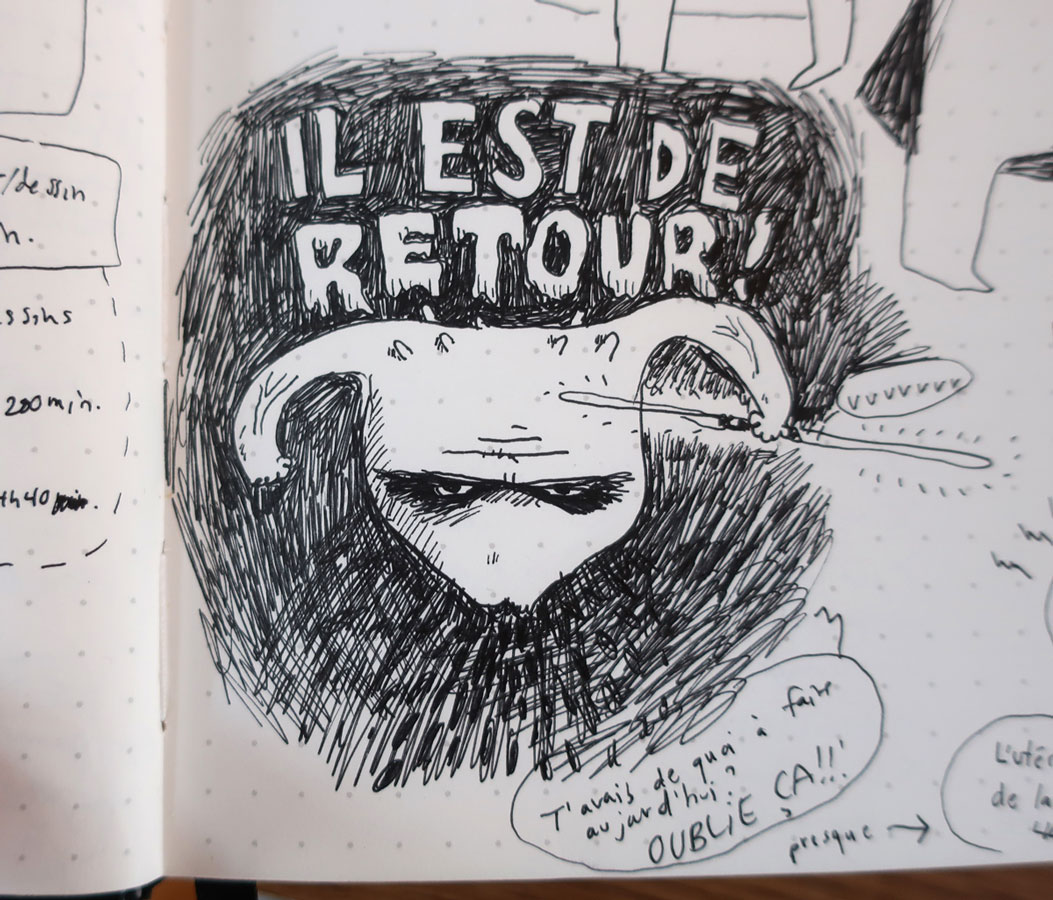 /dessin
h.
ssins
200 min.
1h40 min.
IL EST DE
RETOUR!
vvvvvvv
T'avais de quoi à faire
aujard'hui?
OUBLIE ÇA!!!
presque
L'uté
de la